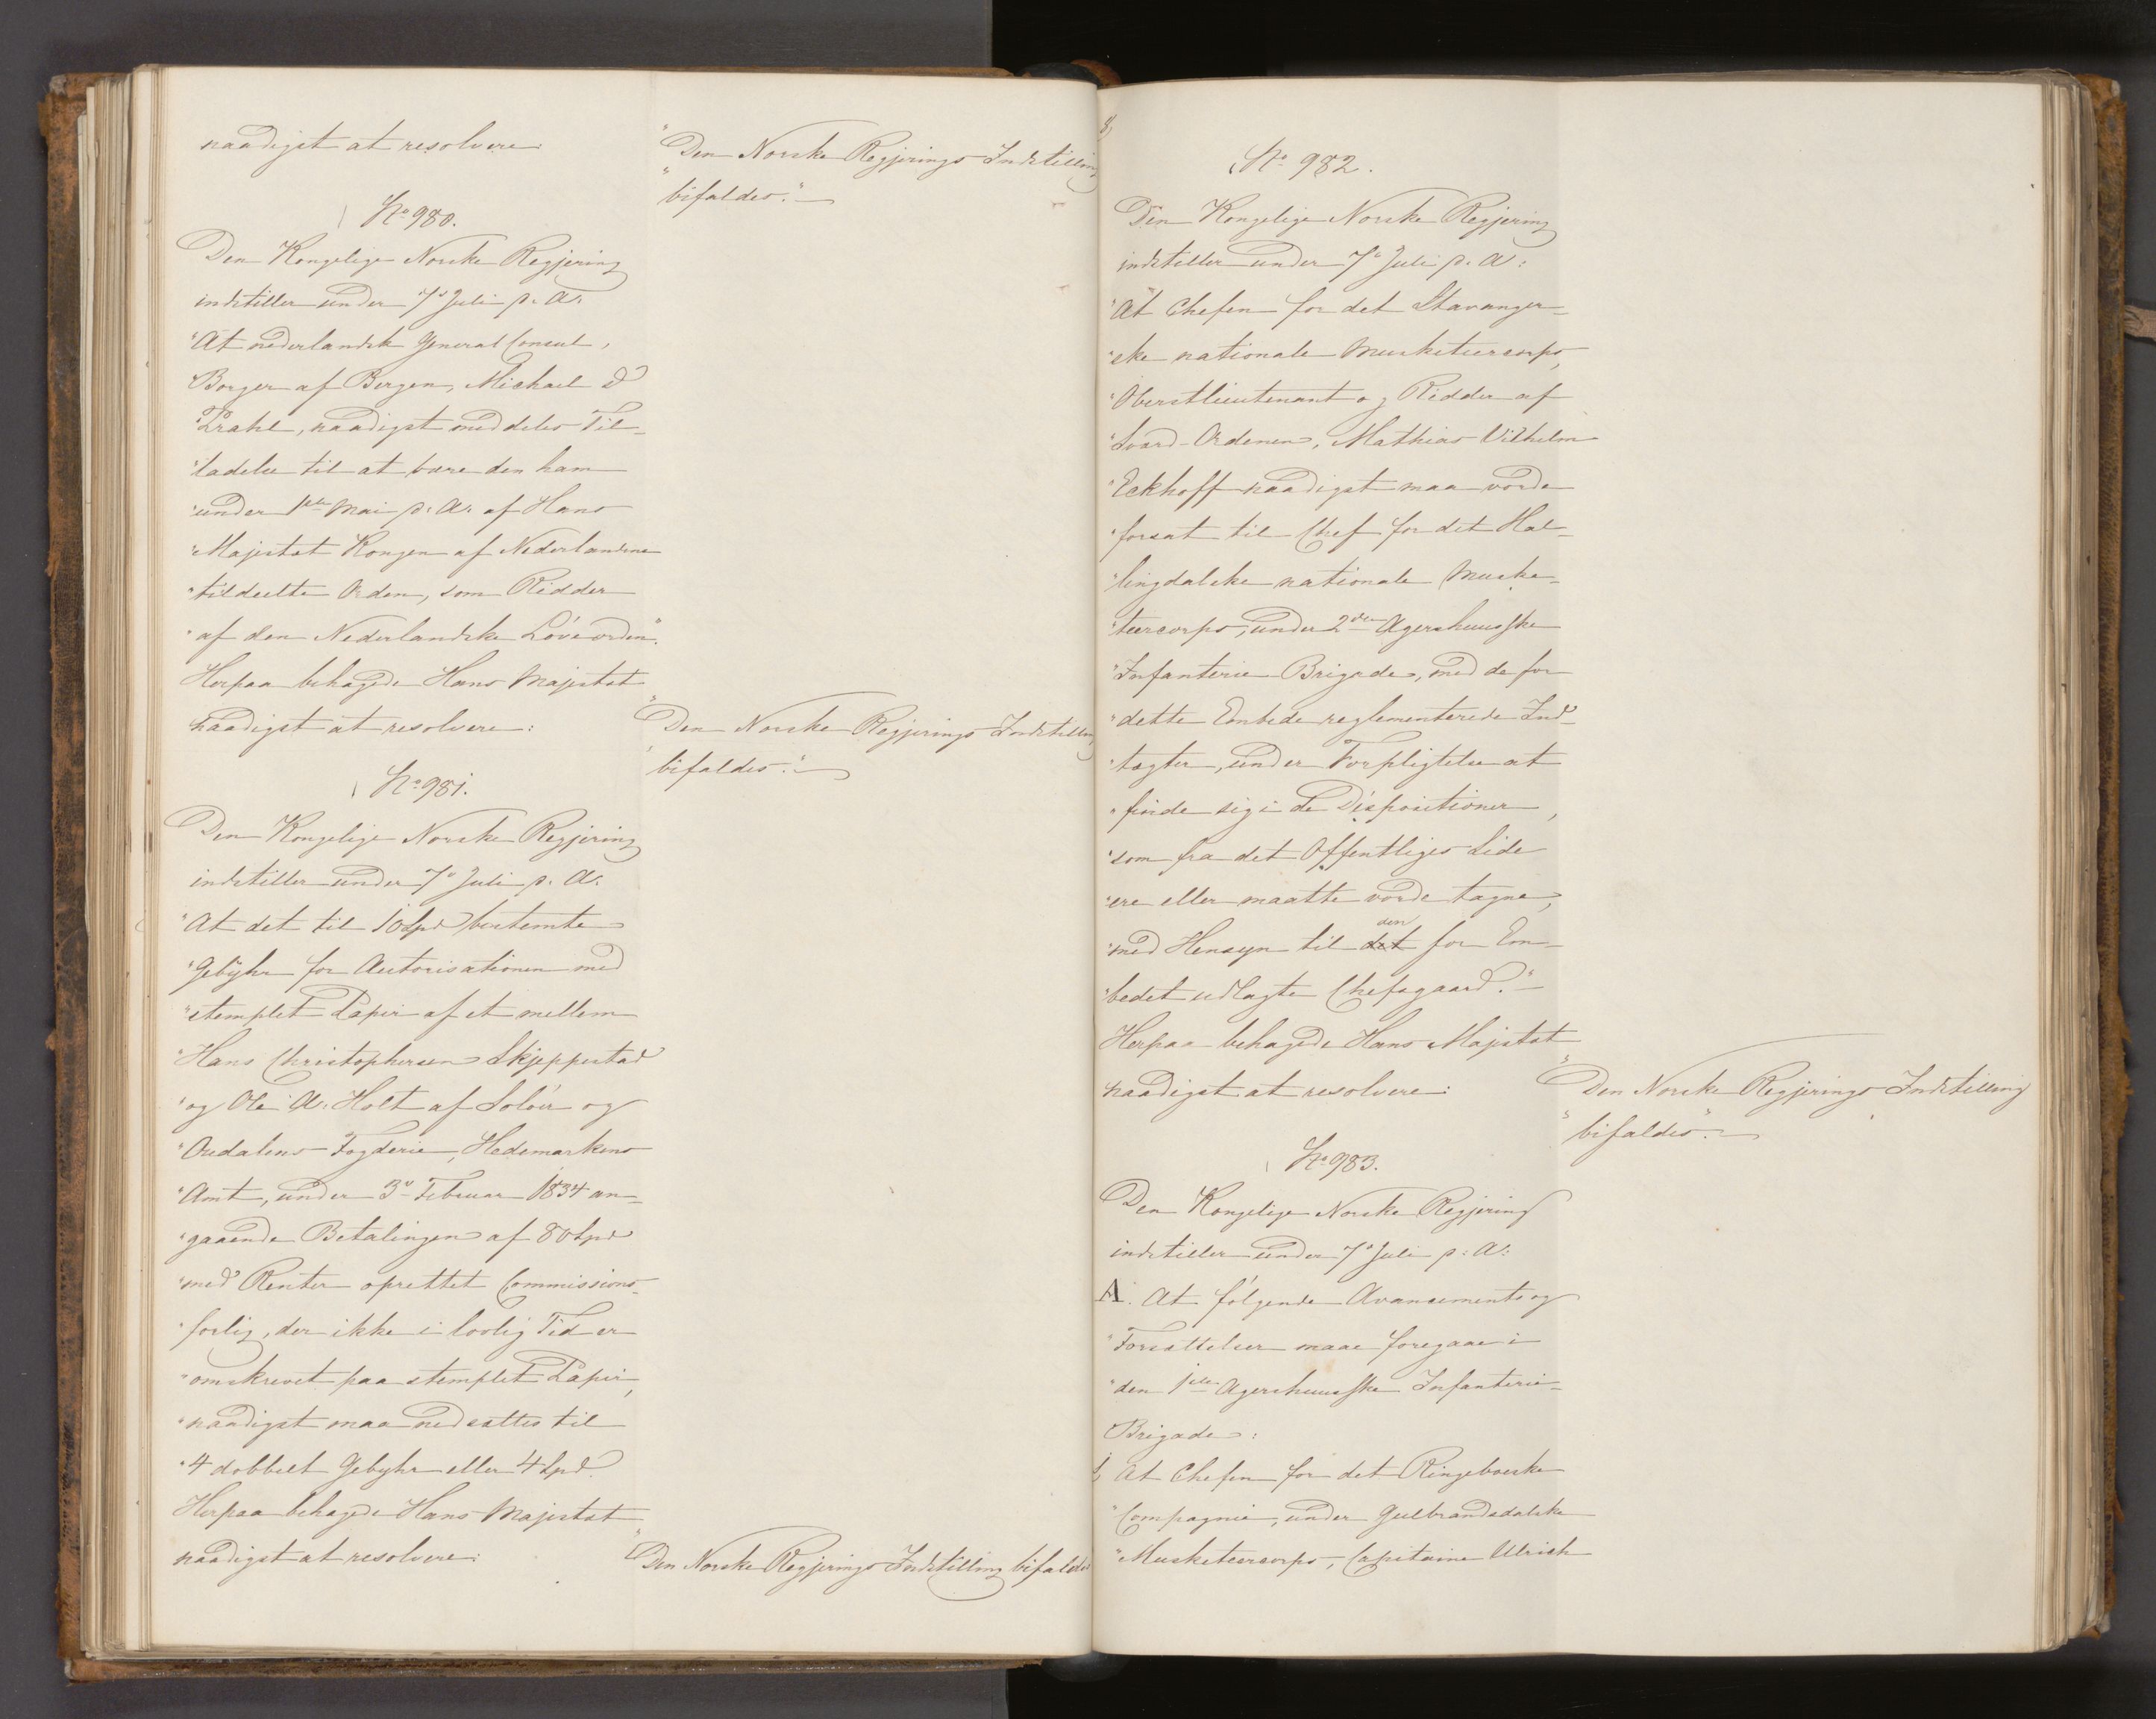 naadigst at resolvere:
"Den Norske Regjerings Indstilling
"bifaldes."
No 980.
Den Kongelige Norske Regjering
indstiller under 7de Juli d. A.
"At nederlandsk General Consul,
"Borger af Bergen, Michael d
"Prahl, naadigst meddeles Til-
"ladelse til at bære den ham
"under 1ste Mai d. A. af Hans
"Majestæt Kongen af Nederlandene
"tildeelte Orden, som Ridder
"af den Nederlandske Löveorden".
Herpaa behagede Hans Majestæt
naadigst at resolvere:
"Den Norske Regjerings Indstilling
bifaldes."
No 981.
Den Kongelige Norske Regjering
indstiller under 7de Juli d. A.
"At det til 10 Spd bestemte
"Gebyhr for Autorisationen med
"stemplet Papir af et mellem
"Hans Christophersen Skjeppestad
"og Ole A. Holt af Solöer og
"Oudalens Fogderie, Hedemarkens
"Amt, under 3de Februar 1834 an-
"gaaende Betalingen af 80 Spd
"med Renter oprettet Commissions-
"forlig, der ikke i lovlig Tid er
"omskrevet paa stemplet Papir,
"naadigst maa nedsættes til
"4 dobbelt Gebyhr eller 4 Spd."
Herpaa behagede Hans Majestæt
naadigst at resolvere:
"Den Norske Regjerings Indstilling bifaldes
No 982.
Den Kongelige Norske Regjering
indstiller under 7de Juli d. A:
"At Chefen for det Stavanger-
"ske nationale Musketeercorps,
"Oberstlieutenant og Ridder af
"Sværd-Ordenen, Mathias Vilhelm
"Eckhoff naadigst maa vorde
"forsat til Chef for det Hal-
"lingdalske nationale Muske-
"teercorps, under 2den Agershuusske
"Infanterie Brigade, med de for
"dette Embede reglementerede Ind-
"tægter, under Forpligtelse at
"finde sig i de Dispositioner,
"som fra det Offentliges Side
"ere eller maatte vorde tagne,
den
"med Hensyn til det for Em-
"bedet udlagte Chefsgaard."
Herpaa behagede Hans Majestæt
naadigst at resolvere:
"Den Norske Regjerings Indstilling
"bifaldes."
No 983.
Den Kongelige Norske Regjering
indstiller under 7de Juli d: A:
A. At fölgende Avancements og
"Forsættelser maae foregaae i
"den 1ste Agershuusske Infanterie-
Brigade:
1, At Chefen for det Ringeboeske
"Compagnie, under Gulbrandsdalske
"Musketeercorps, Capitaine Ulrich